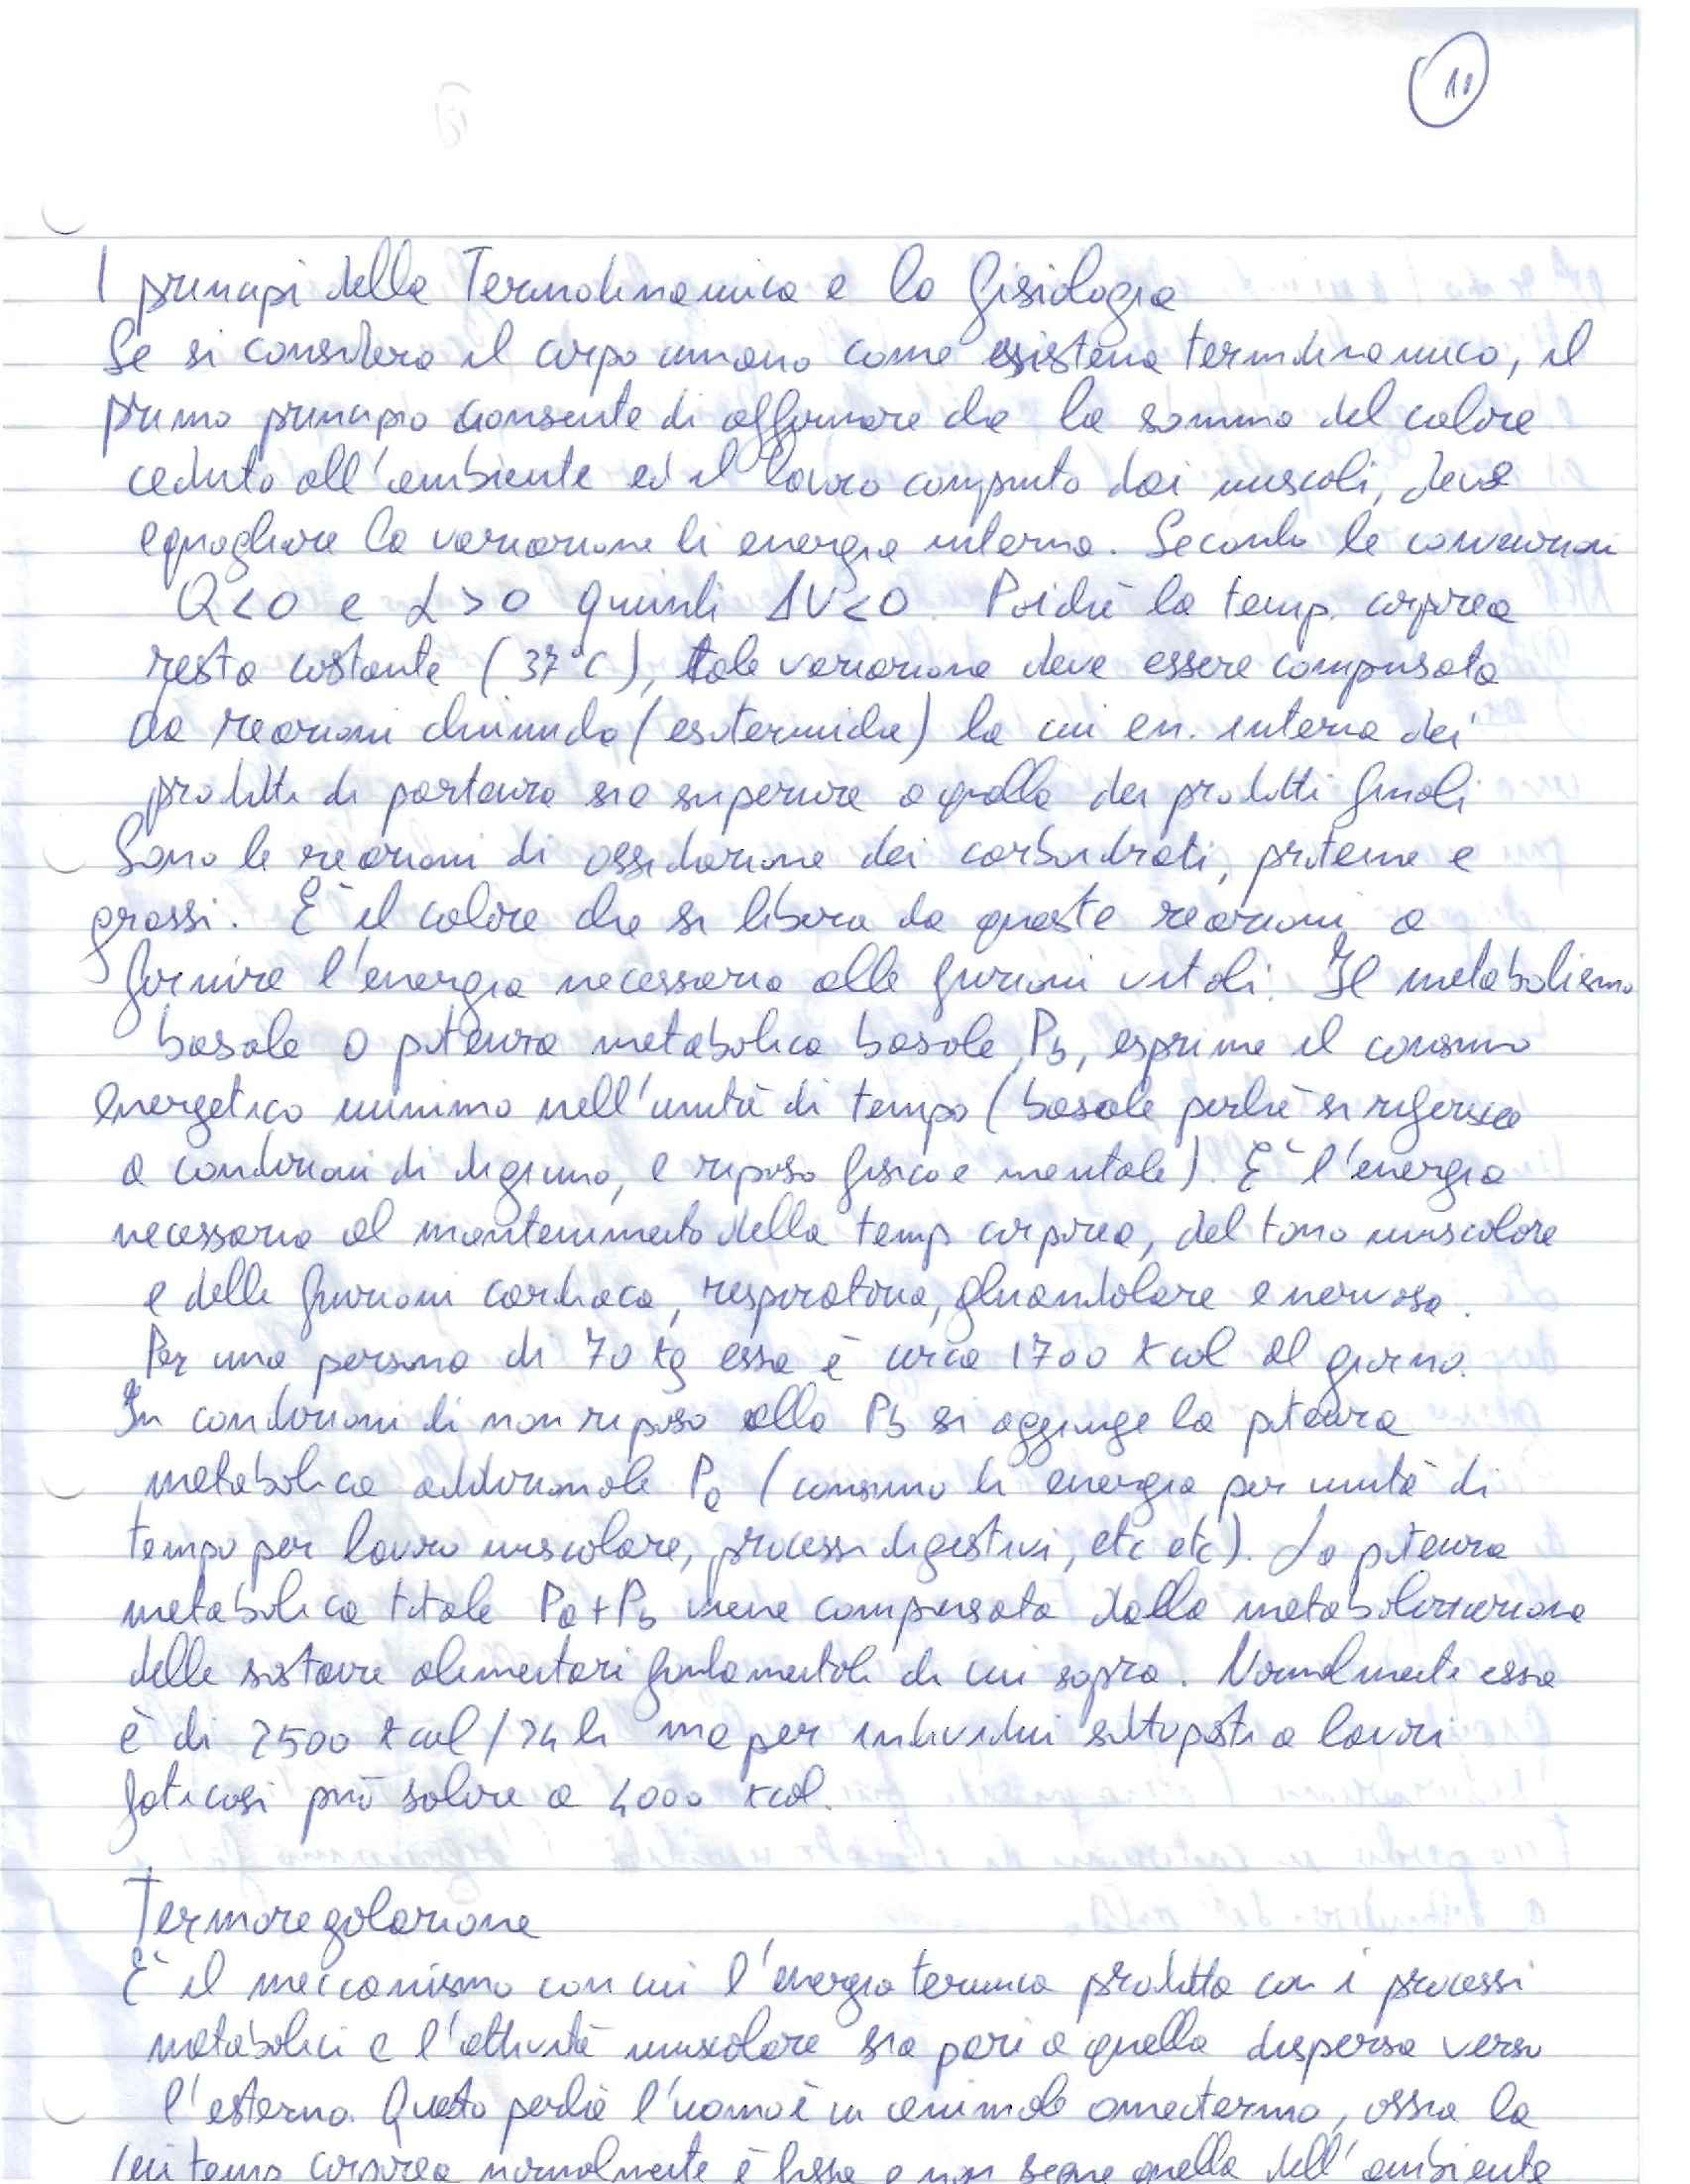 10
I principi della Termodinamica e la fisiologia
Se si considera il corpo umano come sistema termodinamico, il
primo principio consente di affermare che la somma del calore
ceduto all'ambiente ed il lavoro compiuto dai muscoli, deve
eguagliare la variazione di energia interna. Secondo le convenzioni
Q<0 e L>0 quindi ΔU<0. Poichè la temp. corporea
resta costante (37°C), tale variazione deve essere compensata
da reazioni chimiche (esotermiche) la cui en. interna dei
prodotti di partenza sia superiore a quella dei prodotti finali
Sono le reazioni di ossidazione dei carboidrati, proteine e
grassi. È il calore che si libera da queste reazioni a
fornire l'energia necessaria alle funzioni vitali. Il metabolismo
basale o potenza metabolica basale, Pb, esprime il consumo
energetico minimo nell'unità di tempo (basale perchè si riferisce
a condizioni di digiuno, e riposo fisico e mentale). È l'energia
necessaria al mantenimento della temp corporea, del tono muscolare
e delle funzioni cardiaca, respiratoria, ghiandolare e nervosa.
Per una persona di 70 kg essa è circa 1700 kcal al giorno.
In condizioni di non riposo alla Pb si aggiunge la potenza
metabolica addizionale Pa (consumo di energia per unità di
tempo per lavoro muscolare, processi digestivi, etc etc). La potenza
metabolica totale Pa+Pb viene compensata dalla metabolizzazione
delle sostanze alimentari fondamentali di cui sopra. Normalmente essa
è di 2500 kcal/24h ma per individui sottoposti a lavori
faticosi può salire a 4000 kcal.
Termoregolazione
È il meccanismo con cui l'energia termica prodotta con i processi
metabolici e l'attività muscolare sia pari a quella dispersa verso
l'esterno. Questo perchè l'uomo è un animale omeotermo, ossia la
cui temp corporea normalmente è fissa e non segue quella dell'ambiente